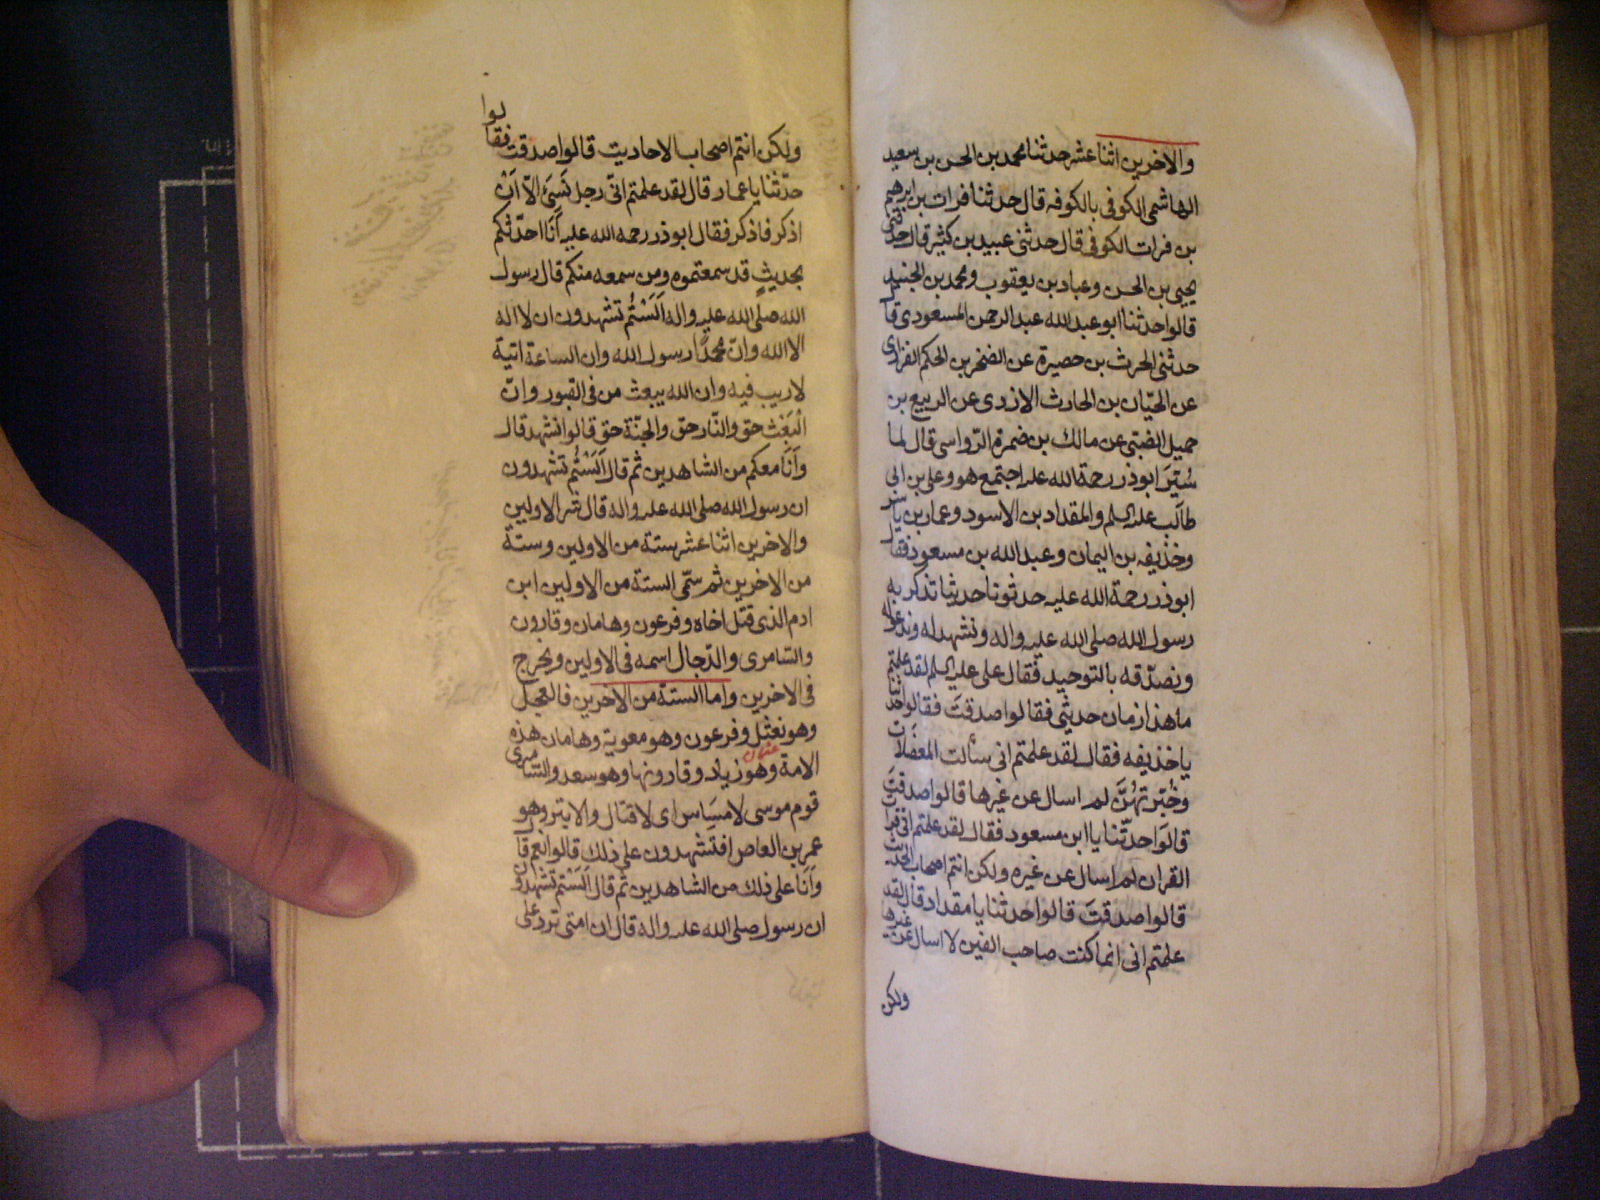 والاخرين اثنا عشر حدثنا محمد بن الحسن بن سعيد
الهاشمى الكوفى بالكوفه قال حدثنا فرات بن ابرهيم
بن فرات الكوفى قال حدثنى عبيد بن كثير قال حدثنى
يحيى بن الحسن وعباد بن يعقوب ومحمد بن الجنيد
قالوا حدثنا ابو عبد الله عبد الرحمن المسعودى قال
حدثنى الحرث بن حصيرة عن الصخر بن الحكم الفزارى
عن الحيّان بن الحارث الازدى عن الربيع بن
جميل الضبّى عن مالك بن ضمرة الرّواسى قال لما
سُيّرَ ابوذر رحمة الله عليه اجتمع هو وعلى بن ابى
طالب عليه السلم والمقداد بن الاسود وعمار بن ياسر
وحذيفه بن اليمان وعبد الله بن مسعود فقال
ابوذر رحمة الله عليه حدثونا حديثا نذكر به
رسول الله صلى الله عليه واله ونشهد له وندعوا له
ونصدّقه بالتوحيد فقال على عليه السلم لقد علمتم
ما هذا زمان حديثى فقالوا صدقتَ فقالوا حدّثنا
يا حذيفه فقال لقد علمتم انى سألت المعضلات
وخُبّرتهُنَّ لم اسال عن غيرها قالوا صدقتَ
قالوا حدّثنا يا ابن مسعود فقال لقد علمتم انى قرات
القران لم اسال عن غيره ولكن انتم اصحاب الحديث
قالوا صدقتَ قالوا حدثنا يا مقداد قال لقد
علمتم انى انما كنت صاحب الفين لا اسال عن غيرها
ولكن
ولكن انتم اصحاب الاحاديث قالوا صدقت فقالوا
حدّثنا يا عمار قال لقد علمتم انّى رجل نَسَىّ الاّ اَنْ
اذكر فاذكر فقال ابوذر رحمه الله عليه اَنَا احدّثكم
بحديثٍ قد سمعتموه ومن سمعه منكم قال رسول
الله صلى الله عليه واله اَلَسْتُم تشهدون ان لا اله
الا الله وانّ محمدًا رسول الله وان الساعة اتية
لا ريب فيه وان الله يبعث من فى القبور وانّ
الْبَعْثَ حق والنّار حق والجنّة حق قالوا نشهد قال
وانَا معكم من الشاهدين ثم قال اَلَسْتُم تشهدون
ان رسول الله صلى الله عليه واله قال شر الاولين
والاخرين اثنا عشر ستة من الاولين وستة
من الاخرين ثم سمّى الستة من الاولين ابن
ادم الذى قتل اخاه وفرعون وهامان وقارون
والسّامرى والدّجال اسمه فى الاولين ويخرج
فى الاخرين واما الستة من الاخرين فالعجل
وهو نعثل وفرعون وهو معوية وهامان هذه
عثمان
الامة وهو زياد وقارونها وهو سعد والسّامرى
قوم موسى لا مسَاس اى لا قتال والابتر وهو
عمر بن العاص افتشهدون على ذلك قالوا نعم قال
وانَا على ذلك من الشاهدين ثم قال اَلَسْتم تشهدون
ان رسول صلى الله عليه واله قال ان امتى ترد على